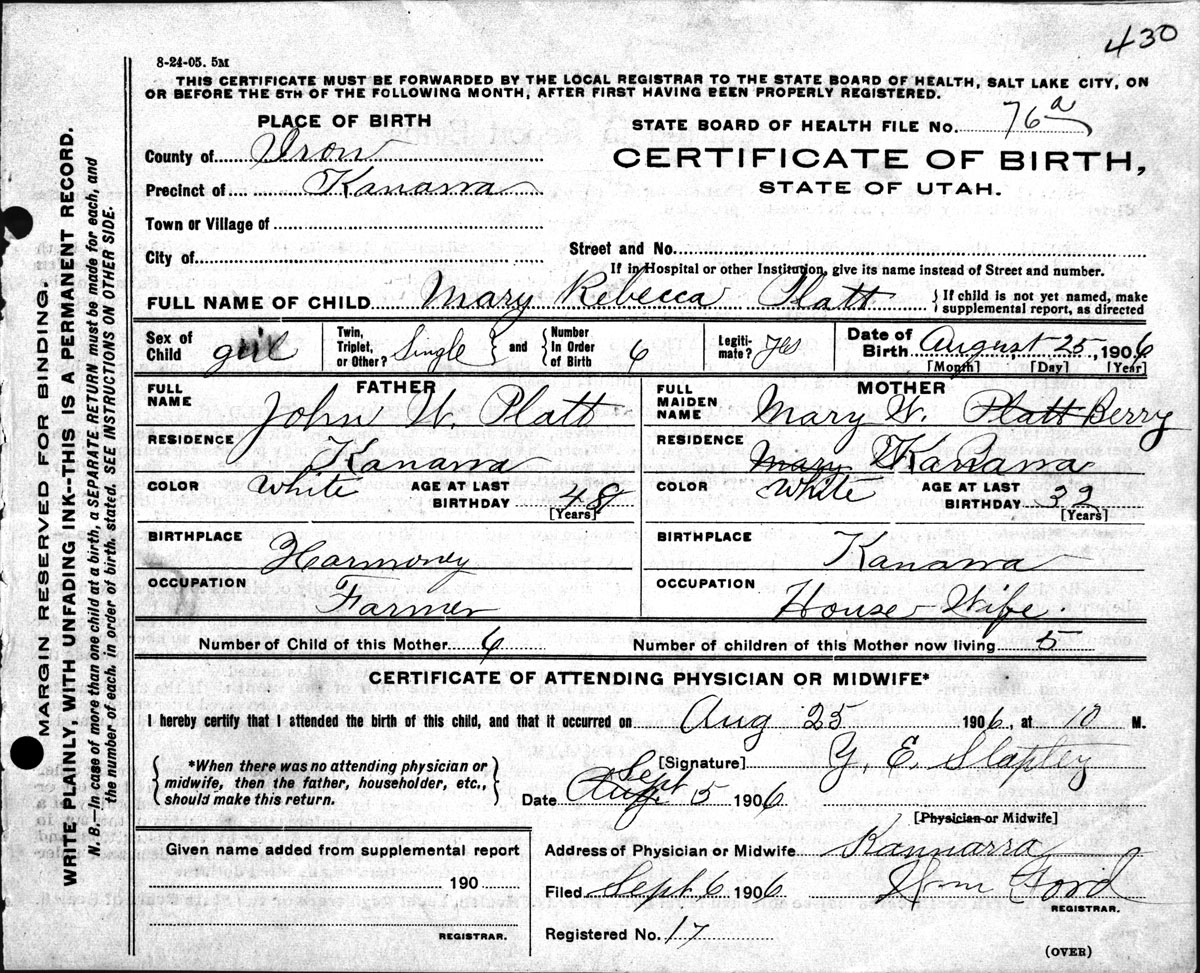 430
8-24-05. 5M
THIS CERTIFICATE MUST BE FORWARDED BY THE LOCAL REGISTRAR TO THE STATE BOARD OF HEALTH, SALT LAKE CITY, ON
OR BEFORE THE 5TH OF THE FOLLOWING MONTH, AFTER FIRST HAVING BEEN PROPERLY REGISTERED.
PLACE OF BIRTH
STATE BOARD OF HEALTH FILE No. 76a
County of Iron
CERTIFICATE OF BIRTH,
Precinct of Kanarra
STATE OF UTAH.
Town or Village of
City of
Street and No.
If in Hospital or other Institution, give its name instead of Street and number.
FULL NAME OF CHILD Mary Rebecca Platt { If child is not yet named, make supplemental report, as directed
Sex of Child girl Twin, Triplet, or Other? Single } and { Number In Order of Birth 6 Legiti-mate? Yes Date of Birth August 25, 1906
[Month] [Day] [Year]
FATHER
FULL NAME John W. Platt
RESIDENCE Kanarra
COLOR White AGE AT LAST BIRTHDAY 48
[Years]
BIRTHPLACE Harmoney
OCCUPATION Farmer
MOTHER
FULL MAIDEN NAME Mary W. Platt Berry
RESIDENCE Mary Kanarra
COLOR White AGE AT LAST BIRTHDAY 32
[Years]
BIRTHPLACE Kanarra
OCCUPATION House-Wife.
Number of Child of this Mother 6 Number of children of this Mother now living 5
CERTIFICATE OF ATTENDING PHYSICIAN OR MIDWIFE*
I hereby certify that I attended the birth of this child, and that it occurred on Aug 25 1906, at 10 M.
{ *When there was no attending physician or
midwife, then the father, householder, etc.,
should make this return. }
[Signature] Y. E. Slapley
Date Aug Sept 5 1906
[Physician or Midwife]
Given name added from supplemental report
190
REGISTRAR.
Address of Physician or Midwife Kannarra
Filed Sept 6 1906 Wm Ford
REGISTRAR.
Registered No. 17
(OVER)
MARGIN RESERVED FOR BINDING.
WRITE PLAINLY, WITH UNFADING INK--THIS IS A PERMANENT RECORD.
N. B.—In case of more than one child at a birth, a SEPARATE RETURN must be made for each, and
the number of each, in order of birth, stated. SEE INSTRUCTIONS ON OTHER SIDE.